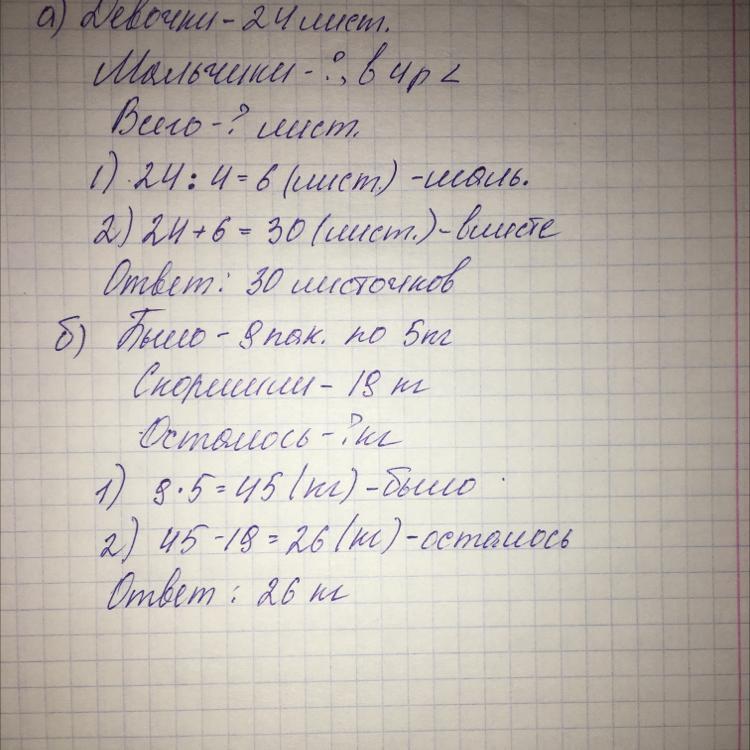 а) Девочки - 24 лист.
Мальчики - ?, в 4р <
Всего - ? лист.
1) 24 : 4 = 6 (лист.) - маль.
2) 24 + 6 = 30 (лист.) - вместе
Ответ: 30 листочков
б) Было - 9 пак. по 5кг
Скормили - 19 кг
Осталось - ? кг
1) 9 · 5 = 45 (кг) - было
2) 45 - 19 = 26 (кг) - осталось
Ответ: 26 кг